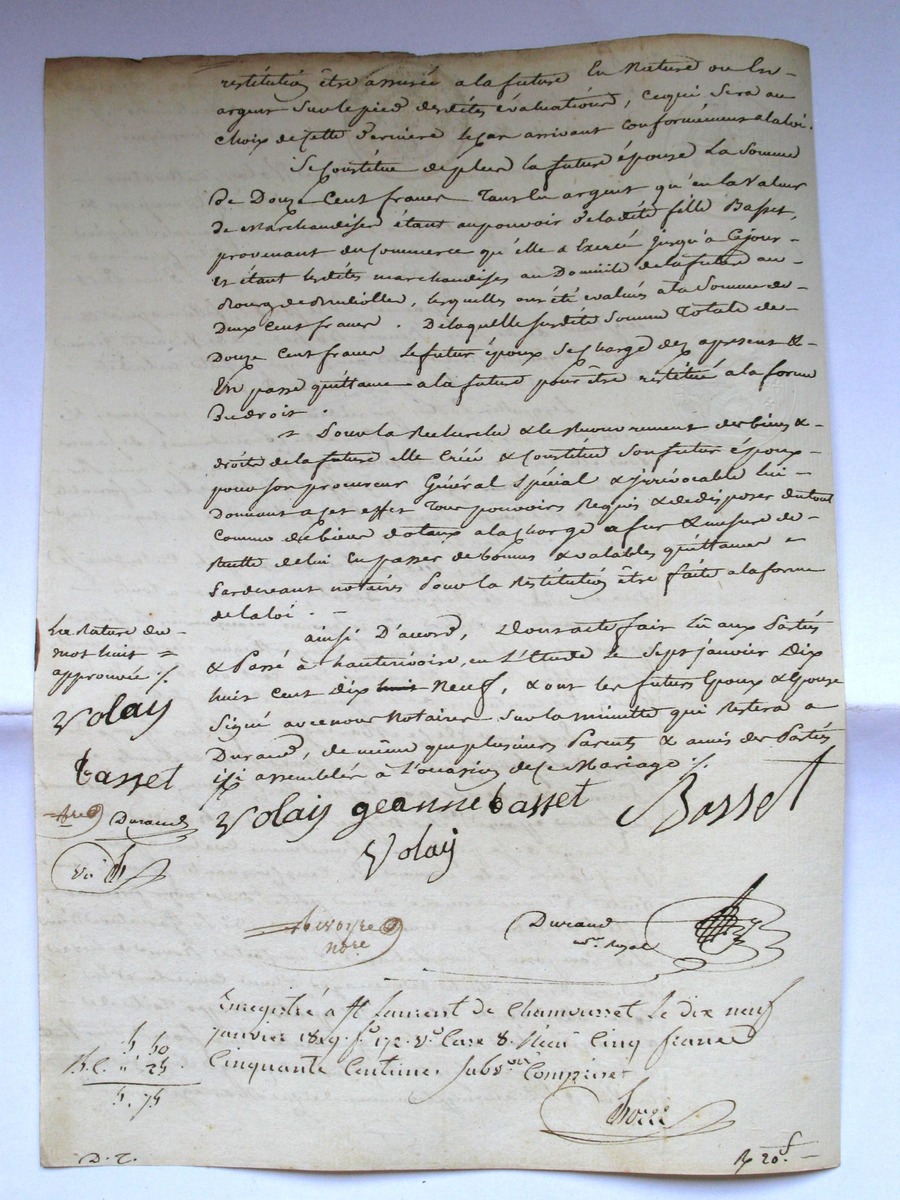 restitution être assurée a la future En Nature ou En
argent sur le pied des dites évaluations, ce qui sera au
choix de cette derniere le cas arrivant conformément a la loi.
Se Constitue de plus la future épouse La Somme
De Douze Cent francs Tant En argent qu'en la Valeur
de Marchandises étant au pouvoir de la dite fille Basset,
provenant du Commerce qu'elle a Exercé jusqu'à Ce jour
et étant lesdites marchandises au Domicile de la future au
Bourg de Brullioles, lesquelles ont été évalués a la Somme de
Deux Cent francs. De laquelle susdite Somme Totale de
Douze Cent francs Le futur époux se Charge dez apresent &
En passe quittance a la future pour être restitué a la forme
De droit.
Pour la Recherche & le Recouvrement des biens &
droits de la future elle Créée & Constitue Son futur époux
pour son procureur Général Spécial & irrévocable lui
Donnant a cet effet Tous pouvoirs Requis & de disposer du tout
Comme de biens dotaux a la Charge a fur & mesure de
Recette de lui En passer de bonnes & valables quittances
Pardevant notaires Pour la Restitution être faite a la forme
de la loi.
ainsi D'accord, Dont acte fait lu aux Parties
& Passé à hauterivoire, en L'étude le Sept janvier Dix
huit Cent Dix huit Neuf, & ont les futurs Epoux & Epouse
Signé avec nous Notaires Sur la minutte qui Restera a
Durand, de même que plusieurs Parents & amis des Parties
ici assemblés à l'occasion de ce Mariage ./.
La Rature du
mot huit =
approuvée ./.
Volay
basset
Durand
Volay geanne basset Basset
Volay
nore
Durand
nre Royal
Enregistré à St Laurent de Chamousset Le dix neuf
janvier 1819. fo 172. Vo Case 8. Reçu Cinq francs
Cinquante Centimes Subvon Comprise
5 50
25
5. 75
D. T.
20 f